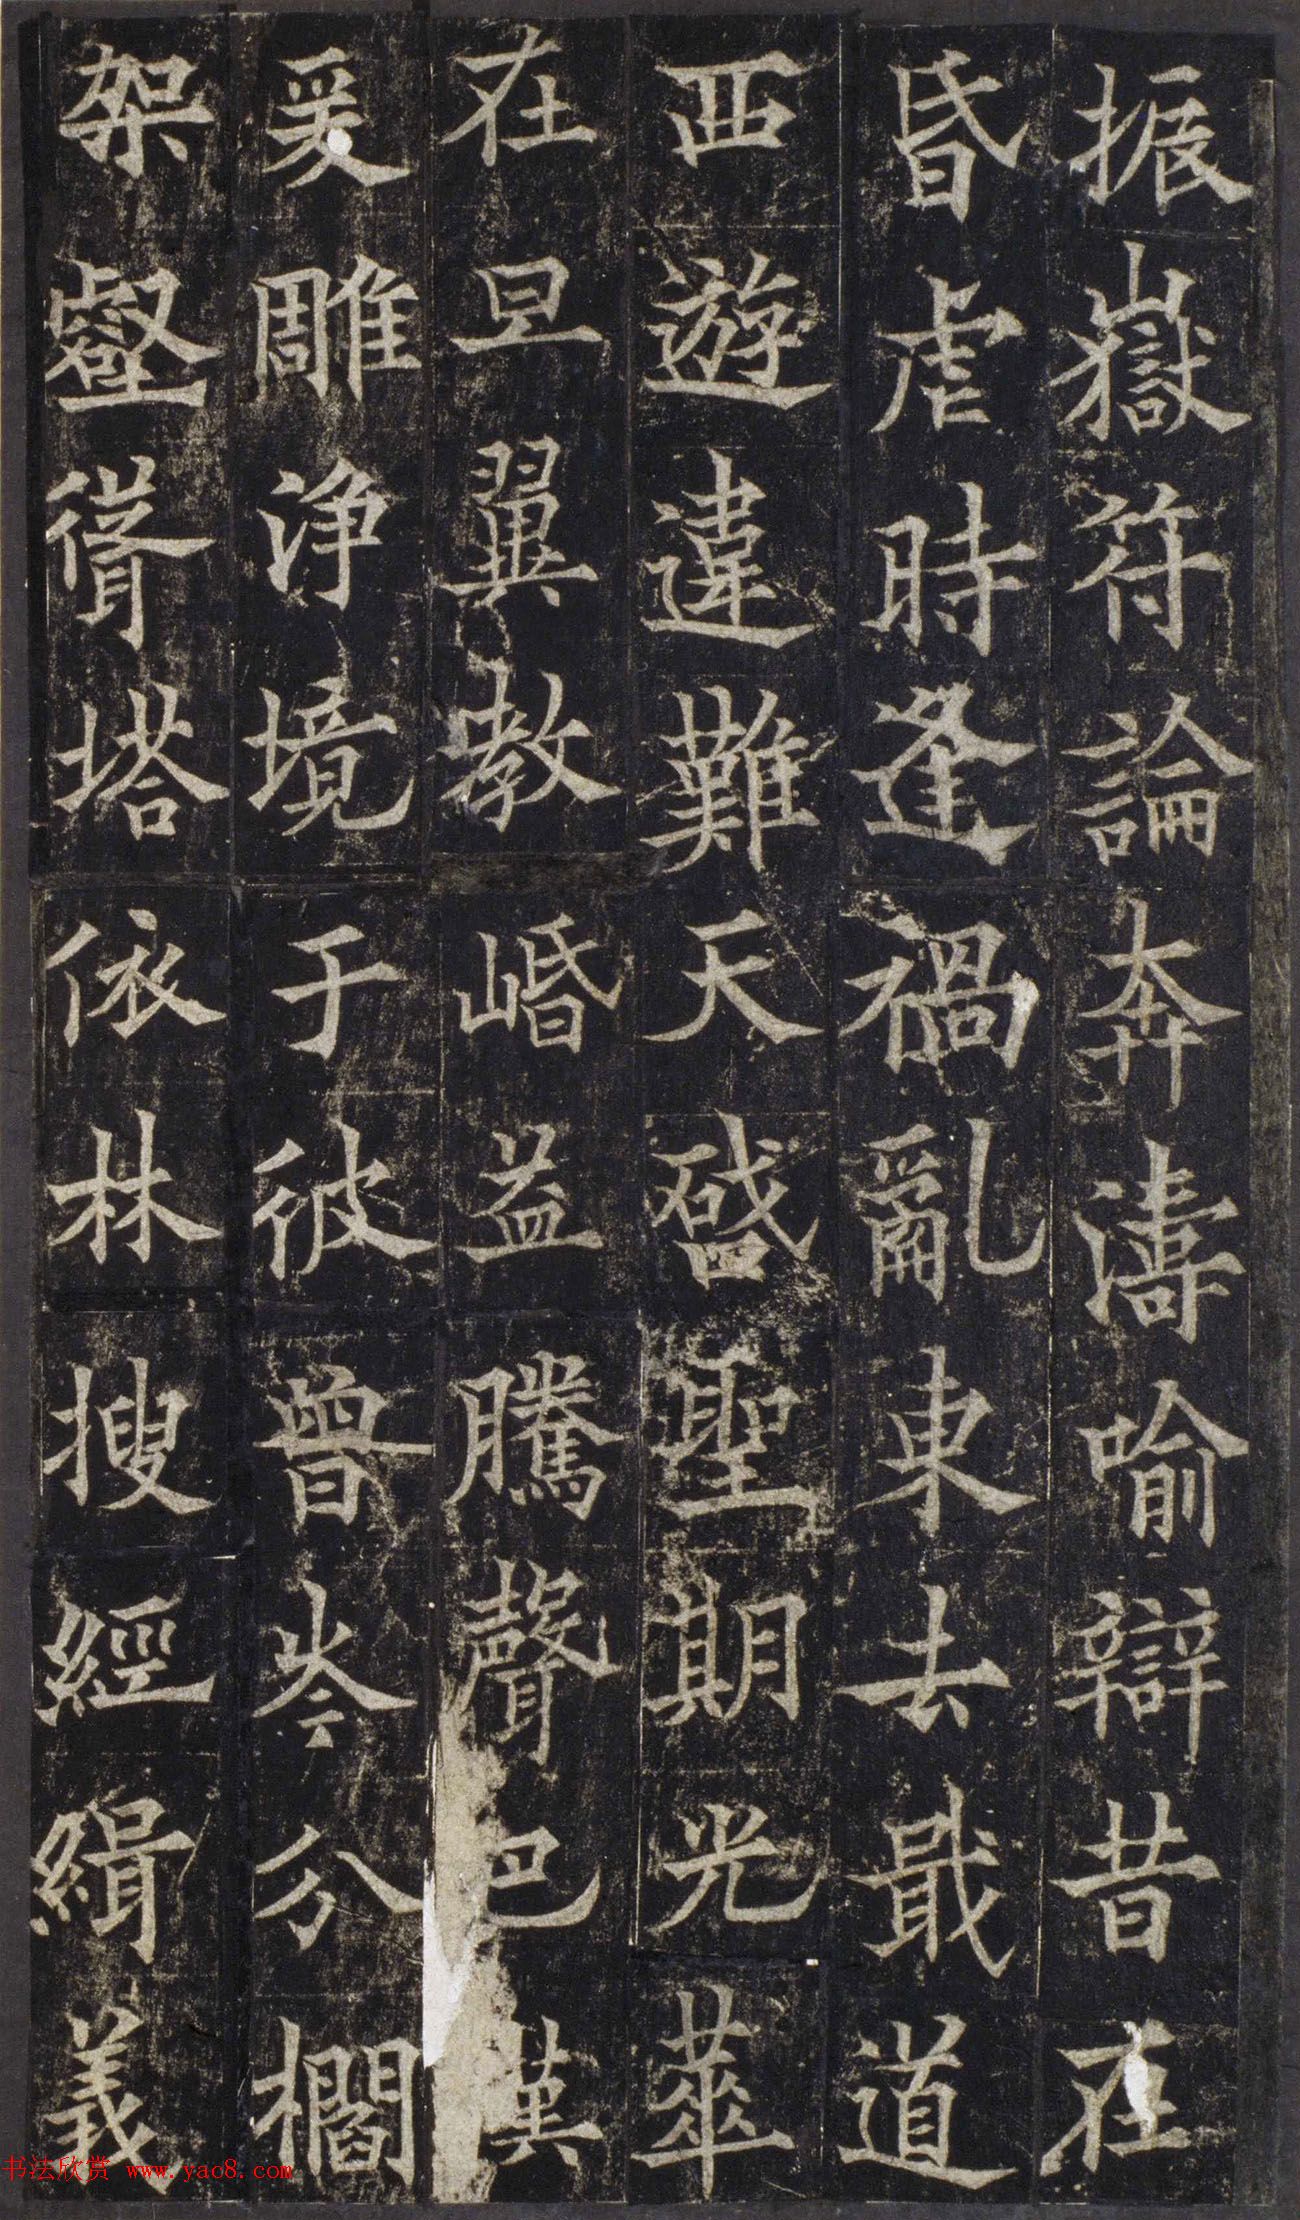 振嶽符論奔濤喻辯昔在
昏虐時逢禍亂東去戢道
西遊違難天啓聖期光華
在旦翼教岷益騰聲巴漢
爰雕淨境于彼曾岑分櫩
架壑循塔依林搜經緝義
书法欣赏 www.yao8.com